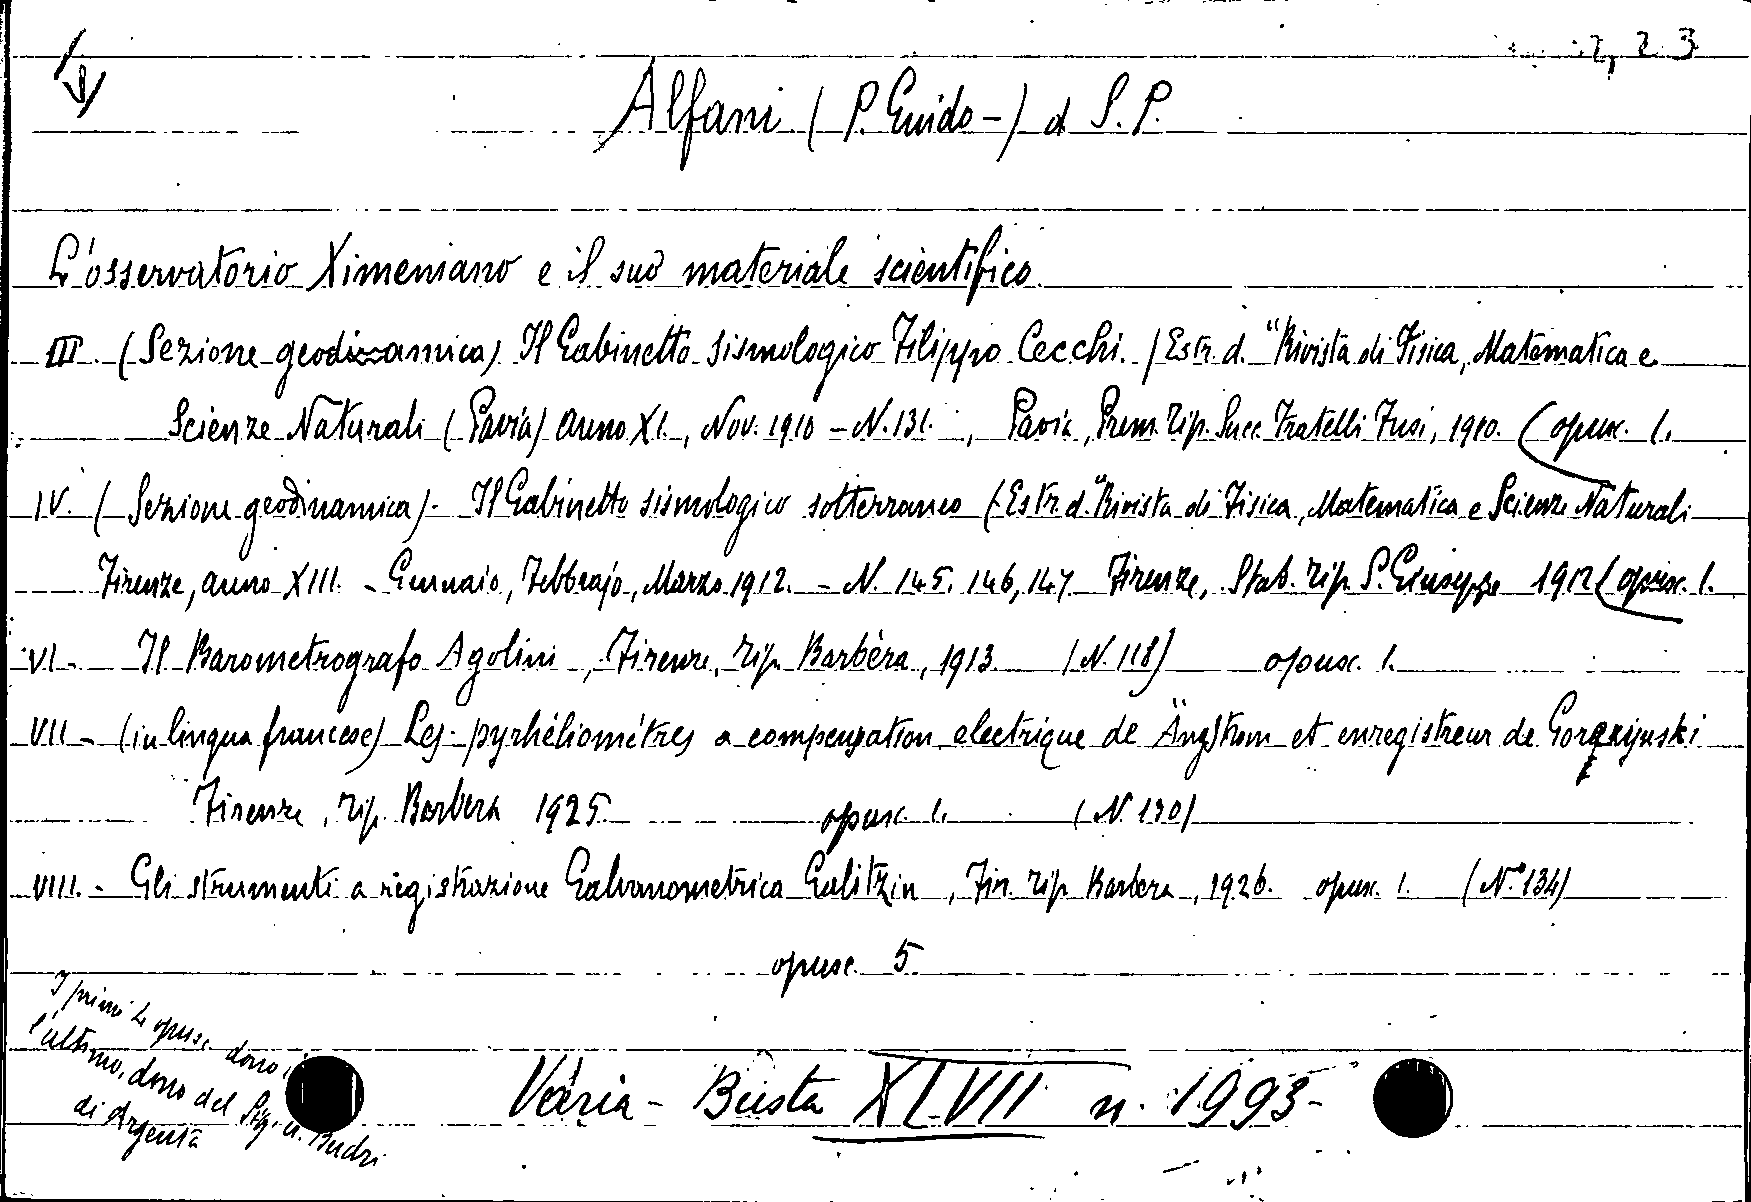 2, 2 3
Alfani (P. Guido-) d S. P.
L'osservatorio Ximeniano e il suo materiale scientifico.
III. (Sezione geodinamica) Il Gabinetto Sismologico Filippo Cecchi. (Estr. d. "Rivista di Fisica, Matematica e
Scienze Naturali (Pavia) anno XI., Nov. 1910 - N. 131. , Pavia, Prem. Tip. Succ. Fratelli Fusi, 1910. (opusc. 1.
IV. (Sezione geodinamica). Il Gabinetto sismologico sotterraneo (Estr. d. "Rivista di Fisica, Matematica e Scienze Naturali
Firenze, anno XIII. - Gennaio, Febbrajo, Marzo 1912. - N. 145, 146, 147 Firenze, Stab. Tip. S. Giuseppe 1912 (opusc. 1.
VI. Il Barometrografo Agolini, Firenze, Tip. Barbèra, 1913. (N. 118) opusc. 1.
VII - (in lingua francese) Les pyrhéliométres a compensation electrique de Ängstrom et enregistreur de Gorczynski
Firenze, Tip. Barbera 1925 opusc. 1. (N. 130)
VIII. - Gli strumenti a registrazione Galvanometrica Galitzin, Fir. Tip. Barbera, 1926. opusc. 1. (N.° 134)
opusc. 5.
I primi 4 opusc. dono
l'ultimo, dono del Sig. Budri
di Argenta
Varia - Busta XLVII n. 1993-